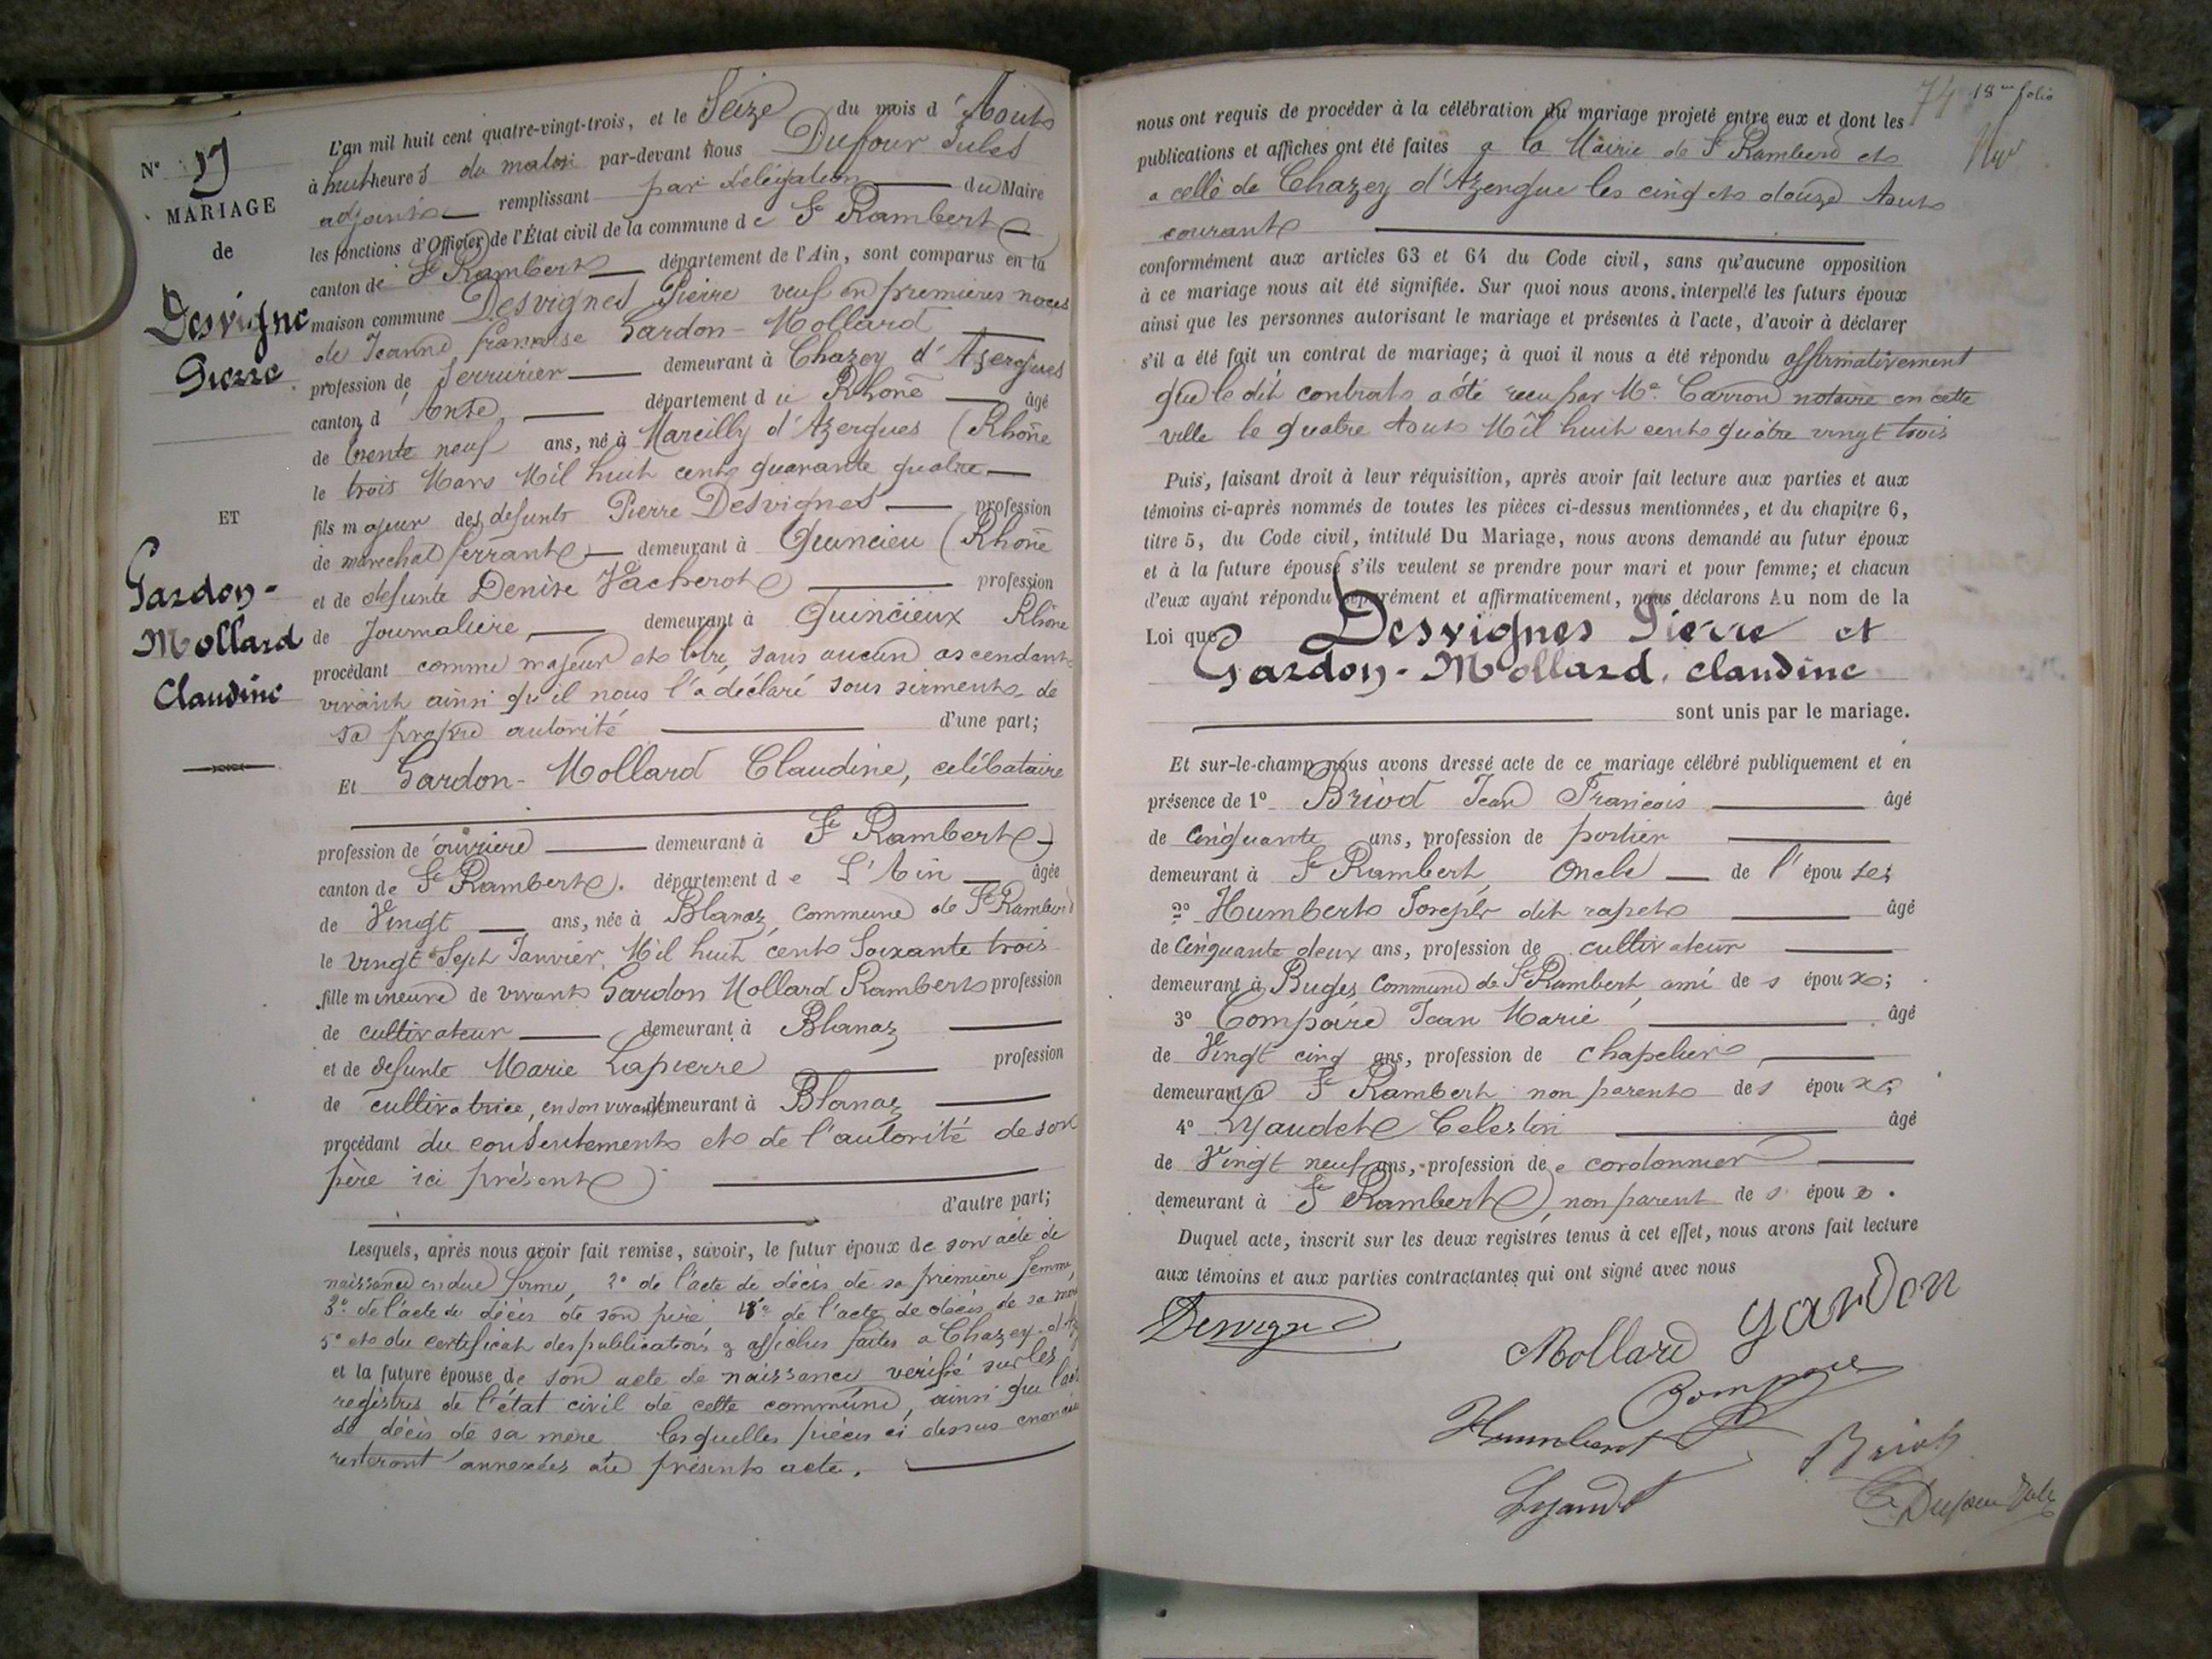 N° 17
MARIAGE
de
Desvigne
Pierre
ET
Gardon-
Mollard
Claudine
L'an mil huit cent quatre-vingt-trois, et le Seize du mois d'Aout
à huit heures du matin par-devant nous Duffour Jules
adjoint remplissant par délégation du Maire
les fonctions d'Officier de l'État civil de la commune de St Rambert
canton de St Rambert département de l'Ain, sont comparus en la
maison commune Desvignes Pierre veuf en premieres noces
de Jeanne française Gardon-Mollard
profession de Serrurier demeurant à Chazey d'Azergues
canton d'Anse département du Rhône âgé
de trente neuf ans, né à Marcilly d'Azergues (Rhône
le trois Mars Mil huit cent quarante quatre
fils majeur des defunts Pierre Desvignes profession
de marechal ferrant demeurant à Quincieu (Rhône
et de defunte Denise Vacherot profession
de Journaliere demeurant à Quincieux Rhône
procédant comme majeur et libre, sans aucun ascendant
vivant ainsi qu'il nous l'a déclaré sous serment, de
sa propre autorité d'une part;
Et Gardon-Mollard Claudine, celibataire
profession de ouvriere demeurant à St Rambert
canton de St Rambert. département de L'Ain âgée
de Vingt ans, née à Blanaz, Commune de St Rambert
le vingt Sept Janvier Mil huit cent Soixante trois
fille mineure de vivant Gardon Mollard Rambert profession
de cultivateur demeurant à Blanaz
et de defunte Marie Lapierre profession
de cultivatrice, en son vivant demeurant à Blanaz
procédant du consentement et de l'autorité de son
père ici présent
d'autre part;
Lesquels, après nous avoir fait remise, savoir, le futur époux de son acte de
naissance en due forme, 2° de l'acte de décès de sa première femme,
3° de l'acte de décès de son père 4° de l'acte de décès de sa mère
5° et du certificat des publications & affiches faites a Chazey d'Az
et la future épouse de son acte de naissance vérifié sur les
registres de l'état civil de cette commune, ainsi que l'acte
de décès de sa mère lesquelles pièces ci dessus enoncées
resteront annexées au présent acte.
74 18me folio
nous ont requis de procéder à la célébration du mariage projeté entre eux et dont les
publications et affiches ont été faites a la Mairie de St Rambert et
a celle de Chazey d'Azergue les cinq et douze Aout
courant
conformément aux articles 63 et 64 du Code civil, sans qu'aucune opposition
à ce mariage nous ait été signifiée. Sur quoi nous avons interpellé les futurs époux
ainsi que les personnes autorisant le mariage et présentes à l'acte, d'avoir à déclarer
s'il a été fait un contrat de mariage; à quoi il nous a été répondu affirmativement
que le dit contrat a été reçu par Me Carron notaire en cette
ville le quatre Aout Mil huit cent quatre vingt trois
Puis, faisant droit à leur réquisition, après avoir fait lecture aux parties et aux
témoins ci-après nommés de toutes les pièces ci-dessus mentionnées, et du chapitre 6,
titre 5, du Code civil, intitulé Du Mariage, nous avons demandé au futur époux
et à la future épouse s'ils veulent se prendre pour mari et pour femme; et chacun
d'eux ayant répondu séparément et affirmativement, nous déclarons Au nom de la
Loi que Desvignes Pierre et
Gardon-Mollard, Claudine
sont unis par le mariage.
Et sur-le-champ nous avons dressé acte de ce mariage célébré publiquement et en
présence de 1° Briod Jean François âgé
de Cinquante ans, profession de portier
demeurant à St Rambert Oncle de l'épouse;
2° Humbert Joseph dit rapet âgé
de Cinquante deux ans, profession de cultivateur
demeurant à Buges Commune de St Rambert, ami des époux;
3° Compaire Jean Marie âgé
de Vingt cinq ans, profession de chapelier
demeurant à St Rambert, non parent des époux;
4° Lyaudet Celestin âgé
de Vingt neuf ans, profession de cordonnier
demeurant à St Rambert, non parent des époux.
Duquel acte, inscrit sur les deux registres tenus à cet effet, nous avons fait lecture
aux témoins et aux parties contractantes qui ont signé avec nous
Desvigne
Mollard gardon
Compaire
Humbert
Briod
Lyaudet
Dufour Jules